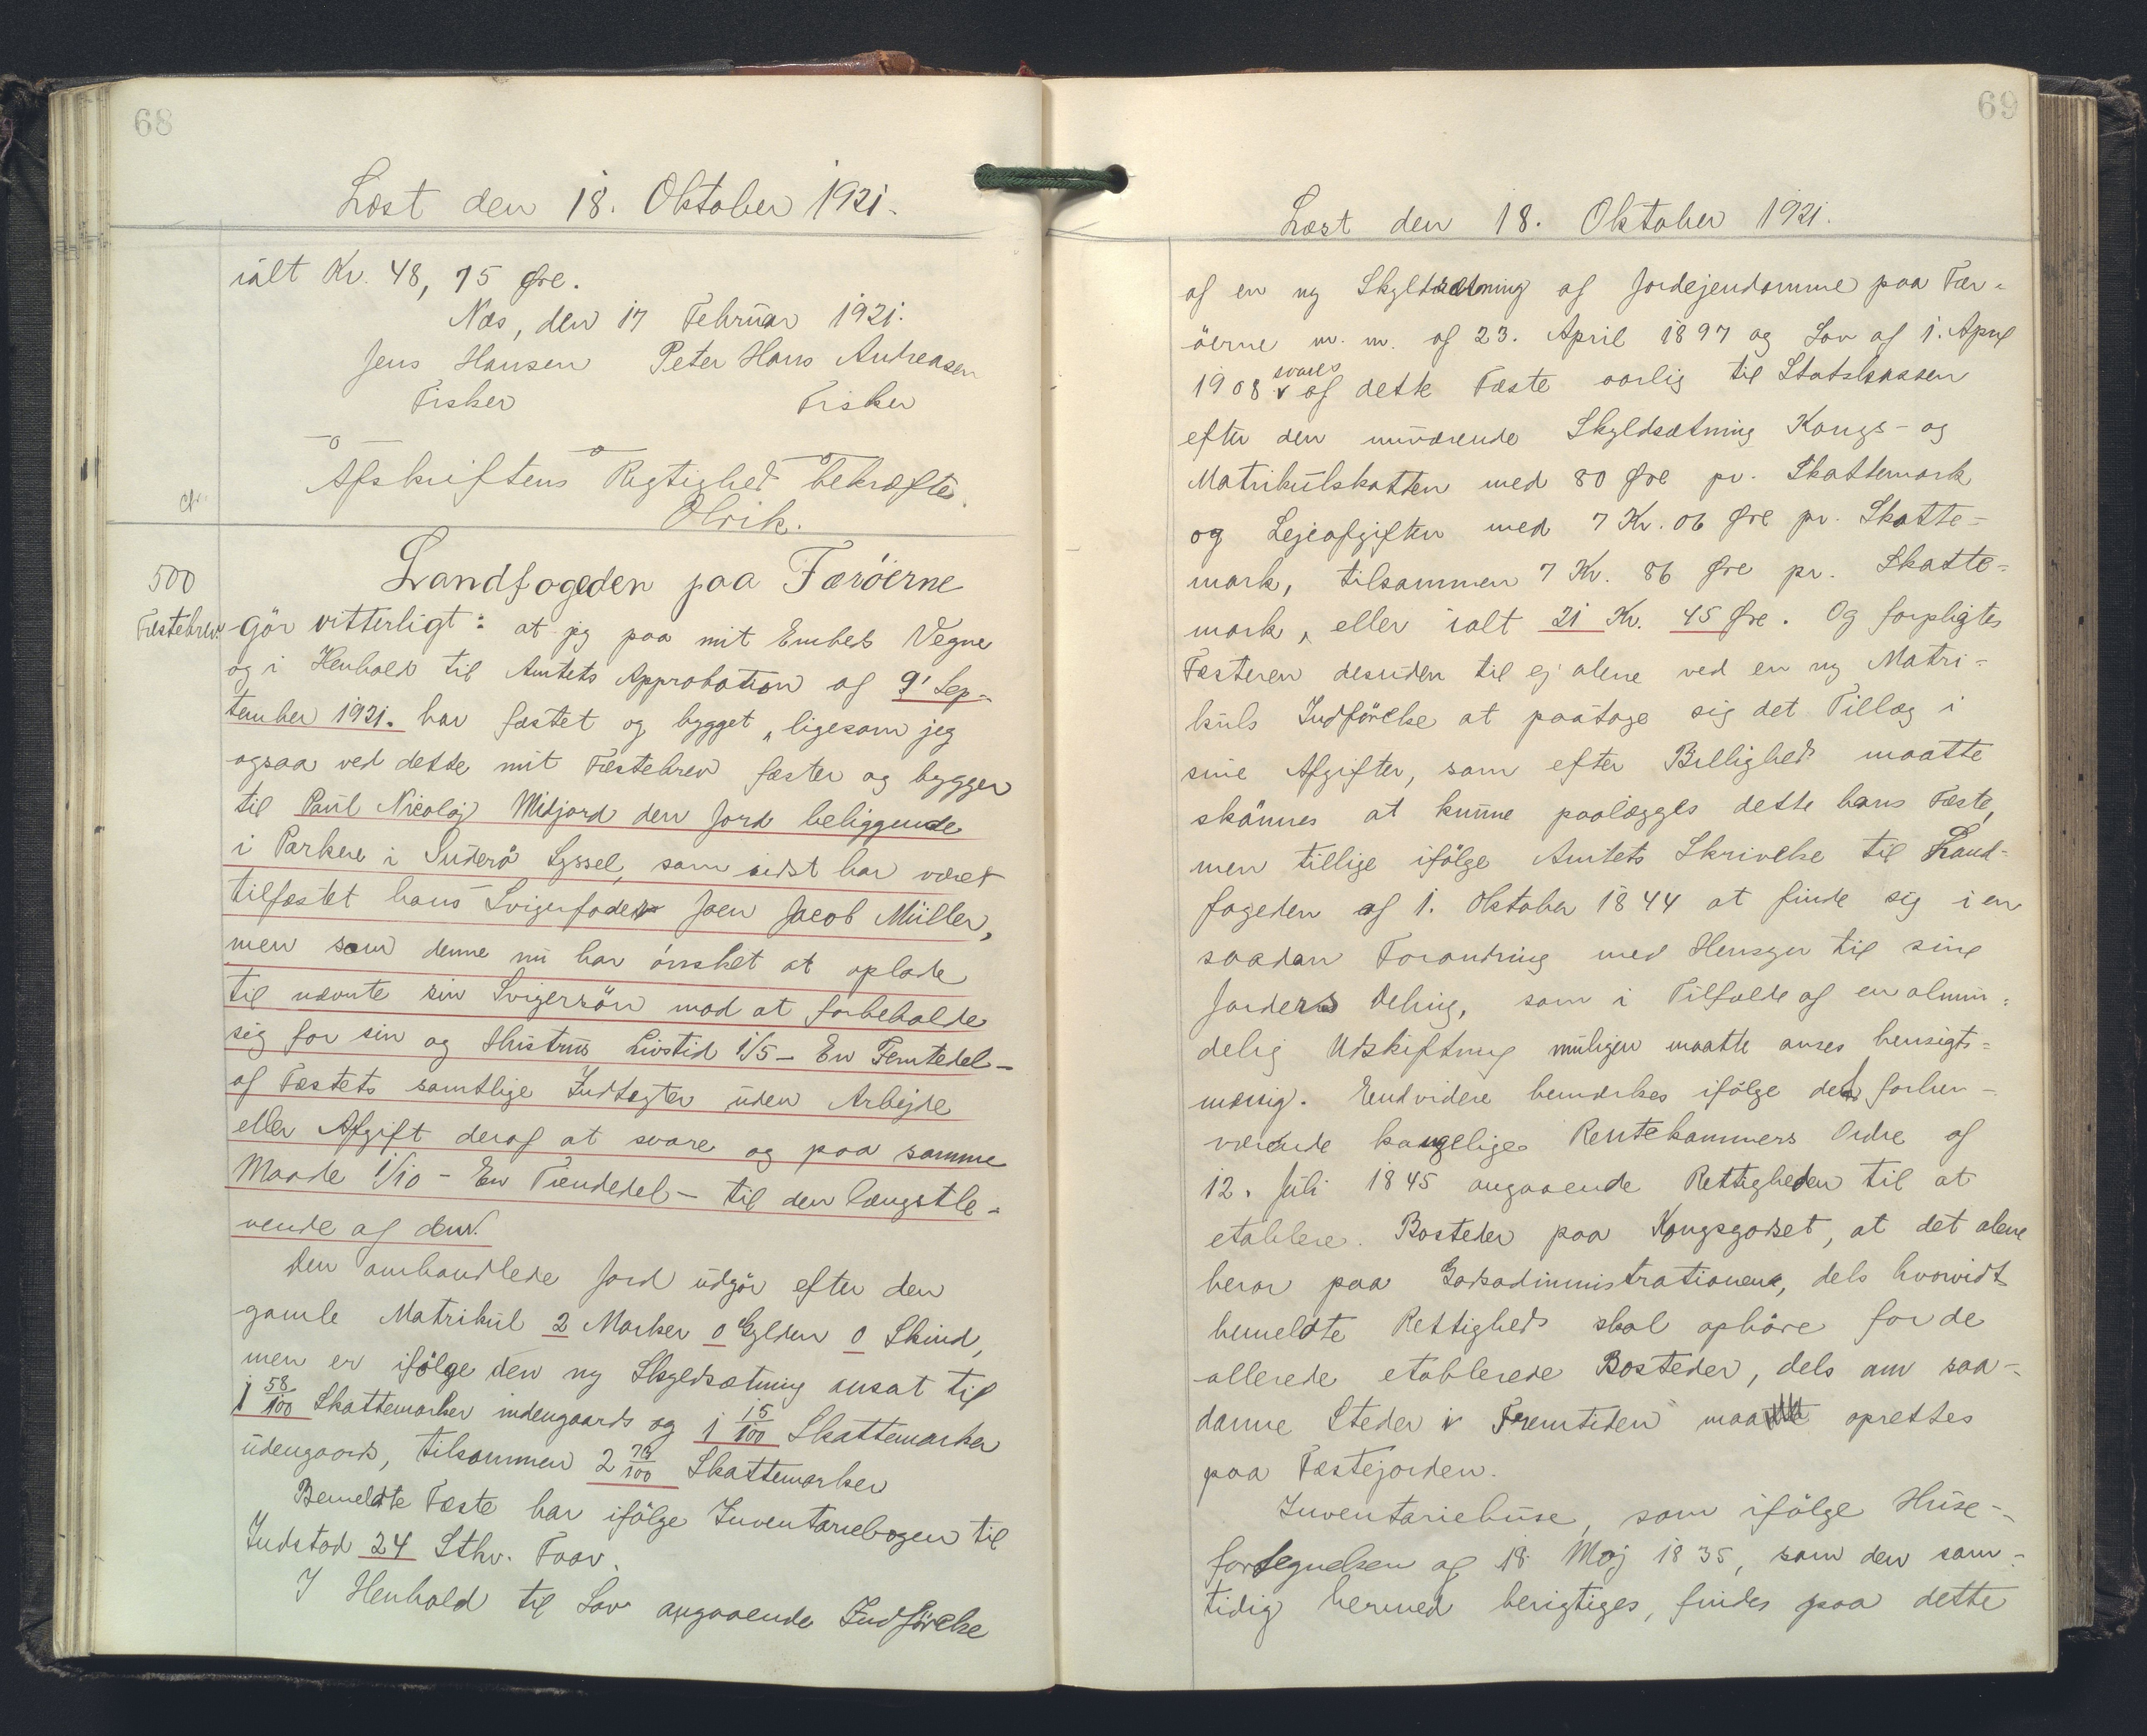 68
Læst den 18. Oktober 1921.
ialt Kr. 48, 75 Øre.
Næs, den 17 Februar 1921.
Jens Hansen Peter Hans Andreasen
Fisker Fisker
Afskriftens Rigtighed bekræftes.
Olrik.
500
Landfogeden paa Færöerne
Fæstebrev. gör vitterligt: at jeg paa mit Embeds Vegne
og i Henhold til Amtets Approbation af 9' Sep-
tember 1921. har fæstet og bygget, ligesom jeg
ogsaa ved dette mit Fæstebrev fæster og bygger
til Paul Nicolaj Midjord den Jord beliggende
i Parkere i Suderö Syssel, som sidst har været
tilfæstet hans Svigerfader Joen Jacob Müller,
men som denne nu har önsket at oplade
til nævnte sin Svigersön mod at forbeholde
sig for sin og Hustrus Livstid 1/5 - En Femtedel -
af Fæstets samtlige Indtægter uden Arbejde
eller Afgift deraf at svare og paa samme
Maade 1/10 - En Tiendedel - til den længstle-
vende af dem.
Den omhandlede Jord udgör efter den
gamle Matrikul 2 Marker 0 Gylden 0 Skind,
men er ifölge den ny Skyldsætning ansat til
1 58/100 Skattemarker indengaards og 1 15/100 Skattemarker
udengaards, tilsammen 2 73/100 Skattemarker
Bemeldte Fæste har ifölge Inventariebogen til
Indstad 24 Stkr. Faar.
I Henhold til Lov angaaende Indförelse
69
Læst den 18. Oktober 1921.
af en ny Skyldsætning af Jordejendomme paa Fær-
öerne m. m. af 23. April 1897 og Lov af 1. April
1908 svares af dette Fæste aarlig til Statskassen
efter den nuværende Skyldsætning Kongs- og
Matrikulskatten med 80 Øre pr. Skattemark
og Lejeafgiften med 7 Kr. 06 Øre pr. Skatte-
mark, tilsammen 7 Kr. 86 Øre pr. Skatte-
mark, eller ialt 21 Kr. 45 Øre. Og forpligtes
Fæsteren desuden til ej alene ved en ny Matri-
kuls Indförelse at paatage sig det Tillæg i
sine Afgifter, som efter Billighed maatte
skönnes at kunne paalægges dette hans Fæste,
men tillige ifölge Amtets Skrivelse til Land-
fogeden af 1. Oktober 1844 at finde sig i en
saadan Forandring med Hensyn til sine
Jorders Deling, som i Tilfælde af en almin-
delig Udskiftning muligen maatte anses hensigts-
mæssig. Endvidere bemærkes ifölge det forhen-
værende kongelige Rentekammers Ordre af
12. Juli 1845 angaaende Rettigheden til at
etablere Bosteder paa Kongsgodset, at det alene
beror paa Godsadministrationen, dels hvorvidt
bemeldte Rettighed skal ophöre for de
allerede etablerede Bosteder, dels om saa-
danne Steder i Fremtiden maa oprettes
paa Fæstejorden.
Inventariehuse, som ifölge Huse-
fortegnelsen af 18. Maj 1835, som den sam-
tidig hermed berigtiges, findes paa dette